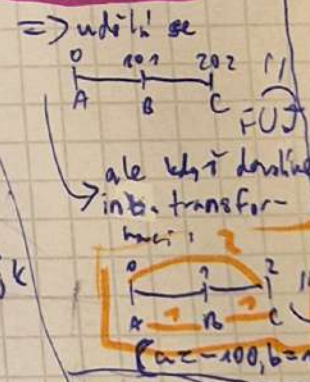 => udělá se
0 101 202
A B C
FUJ
ale když dovolíme
transfor-
maci:
2
0 1 2
A 1 B 1 C
(a = -100, b = 1
k